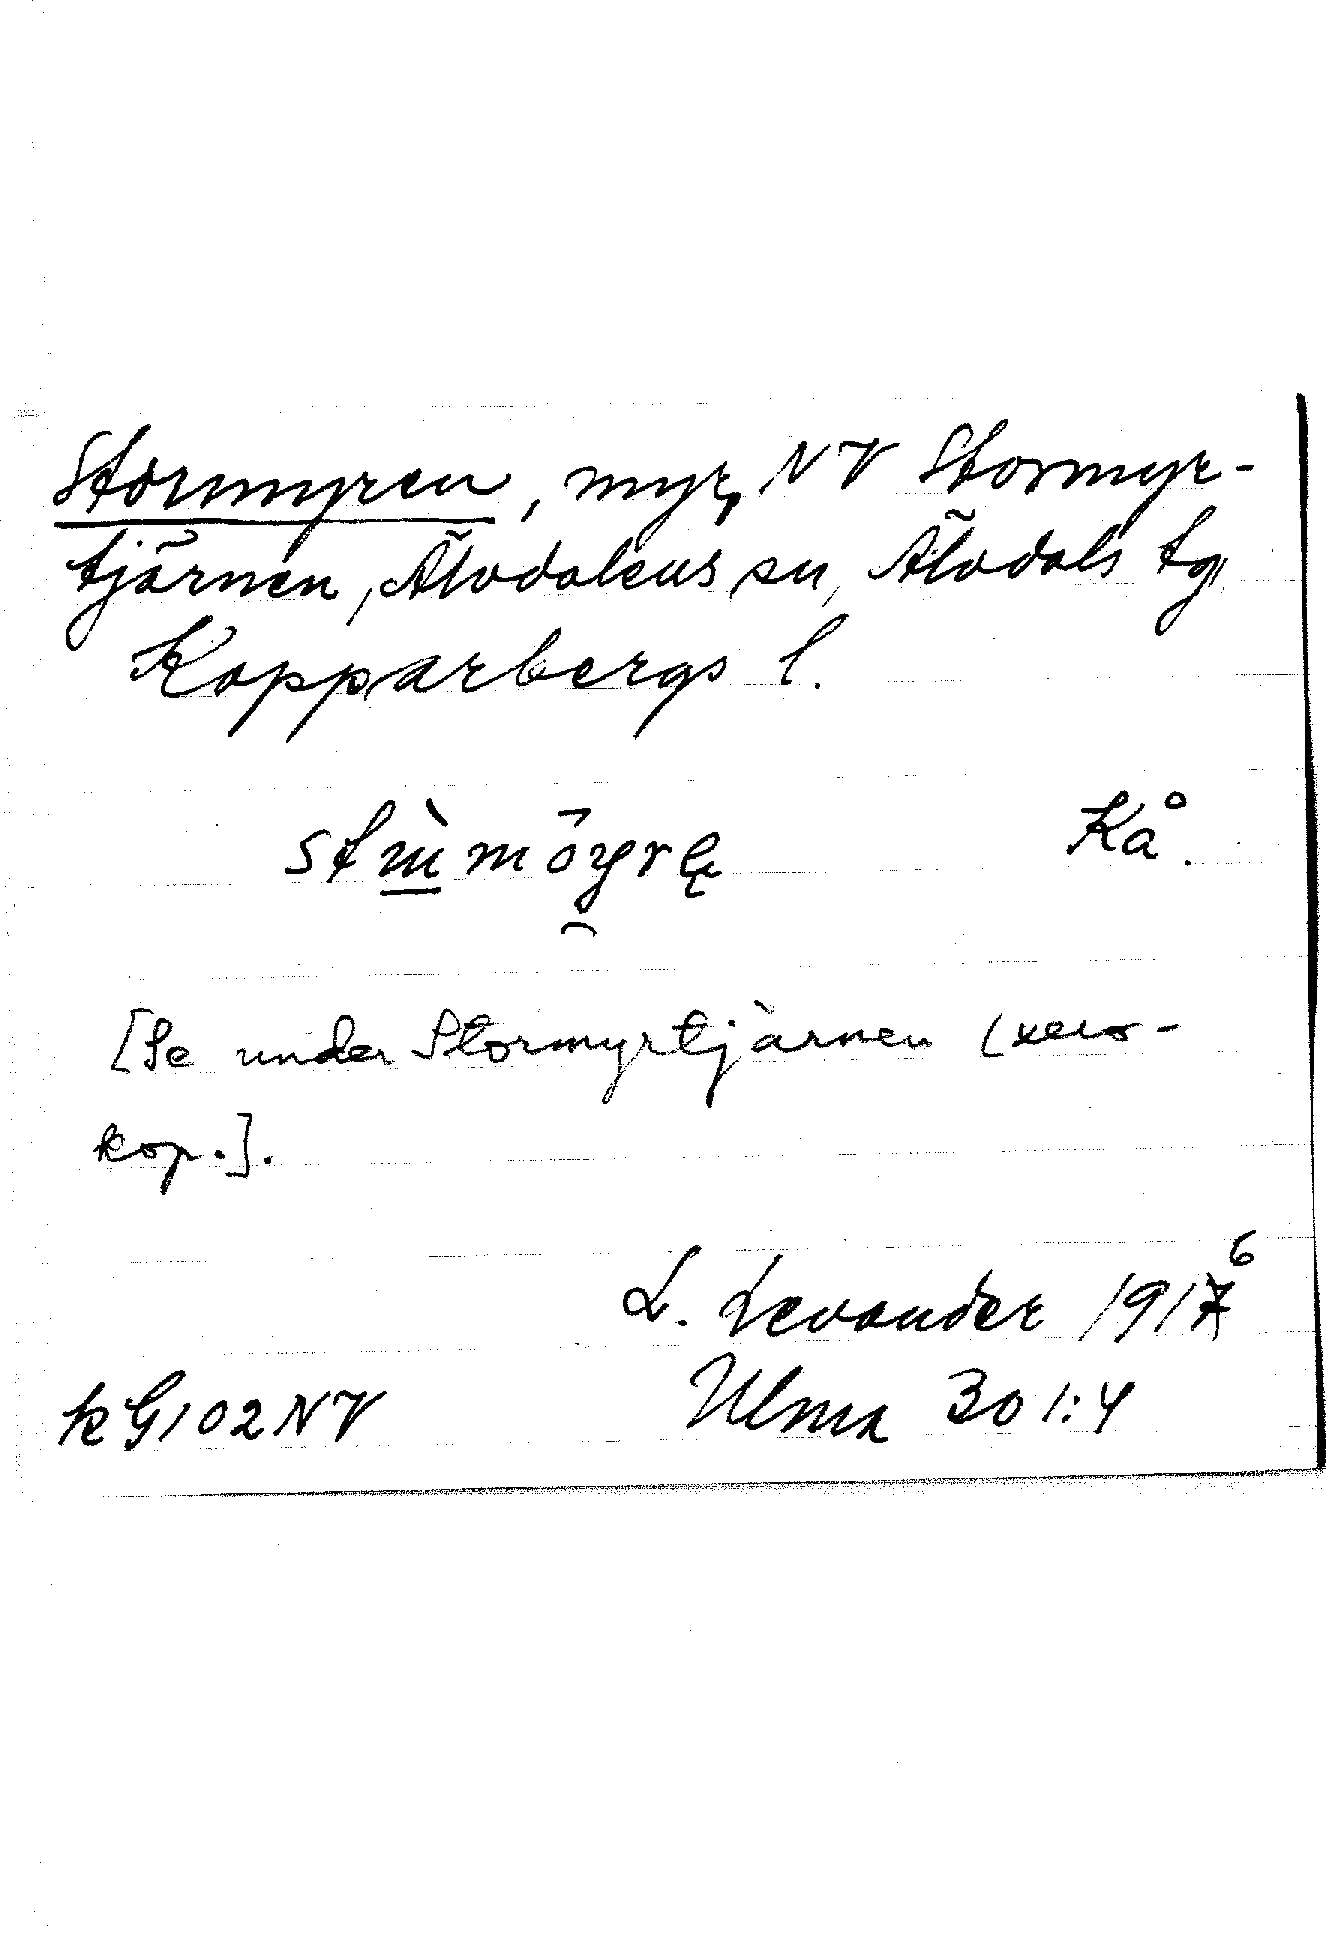 Stormyren, myr, NV Stormyr-
tjärnen, Älvdalens sn, Älvdals tg,
Kopparbergs l.
Kå.
[Se under Stormyrtjärnen (xero-
kop.].
L. Levander 1917 6
Ulma 301:4
kG102NV